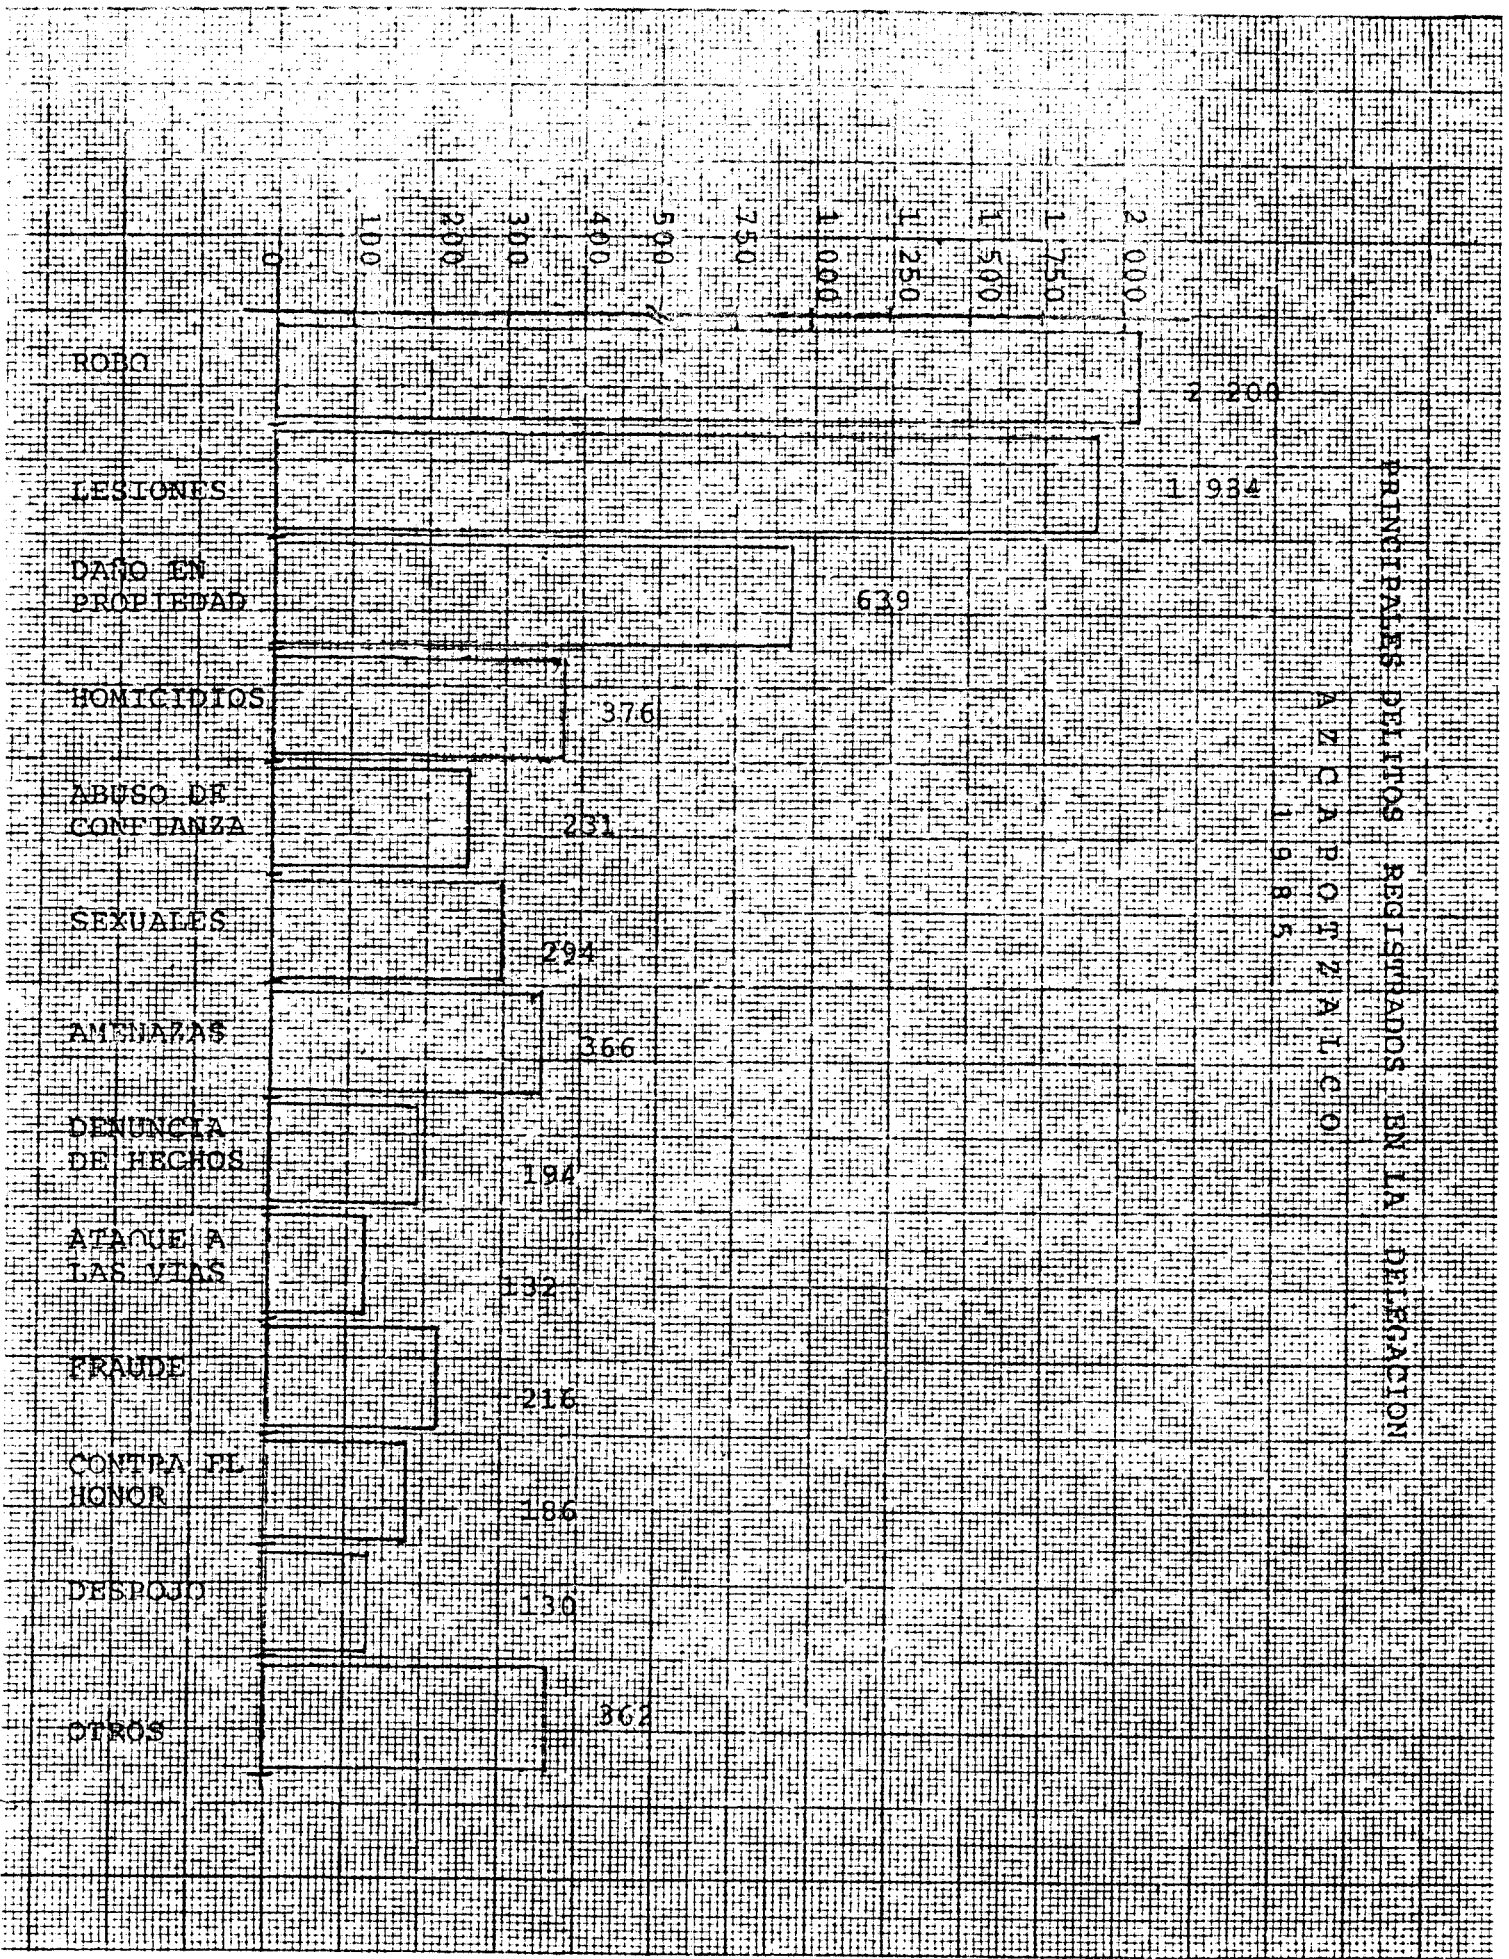 PRINCIPALES DELITOS REGISTRADOS EN LA DELEGACION
AZCAPOTZALCO
1985
2 000
1 750
1 500
1 250
1 000
750
500
400
300
200
100
0
ROBO
2 200
LESIONES
1 934
DAÑO EN
PROPIEDAD
639
HOMICIDIOS
376
ABUSO DE
CONFIANZA
231
SEXUALES
294
AMENAZAS
366
DENUNCIA
DE HECHOS
194
ATAQUE A
LAS VIAS
132
FRAUDE
216
CONTRA EL
HONOR
186
DESPOJO
130
OTROS
362